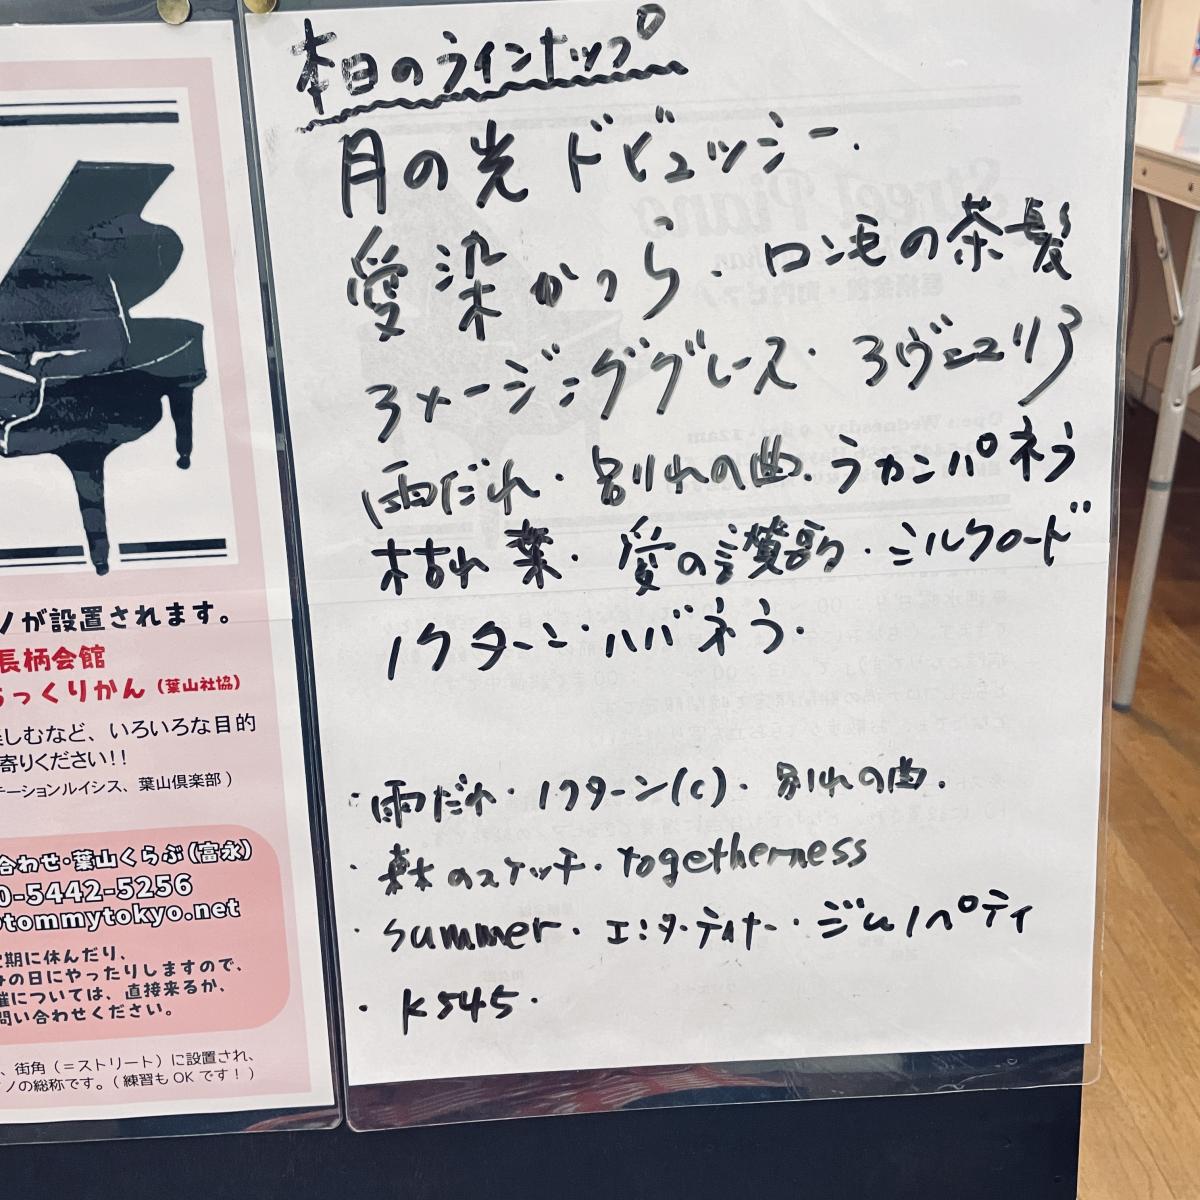 本日のラインナップ
月の光 ドビュッシー.
愛染かつら・ロン毛の茶髪
ラメージ=ググレース・ラヴェニュリア
雨だれ・別れの曲.ラカンパネラ
枯れ葉・愛の讃歌・シルクロード
ノクターン・ハバネラ.
・雨だれ・ノクターン(C)・別れの曲.
・のスケッチ・togetherness
・summer・エンターティナー・ジムノペディ
・K545.
ノが設置されます。
長柄会館
らっくりかん(葉山社協)
楽しむなど、いろいろな目的
寄りください!!
テーションルイシス、葉山倶楽部)
合わせ・葉山くらぶ(富永)
0-5442-5256
@tommytokyo.net
定期に休んだり、
の日にやったりしますので、
催については、直接来るか、
問い合わせください。
、街角(=ストリート)に設置され、
ノの総称です。(練習もOKです!)